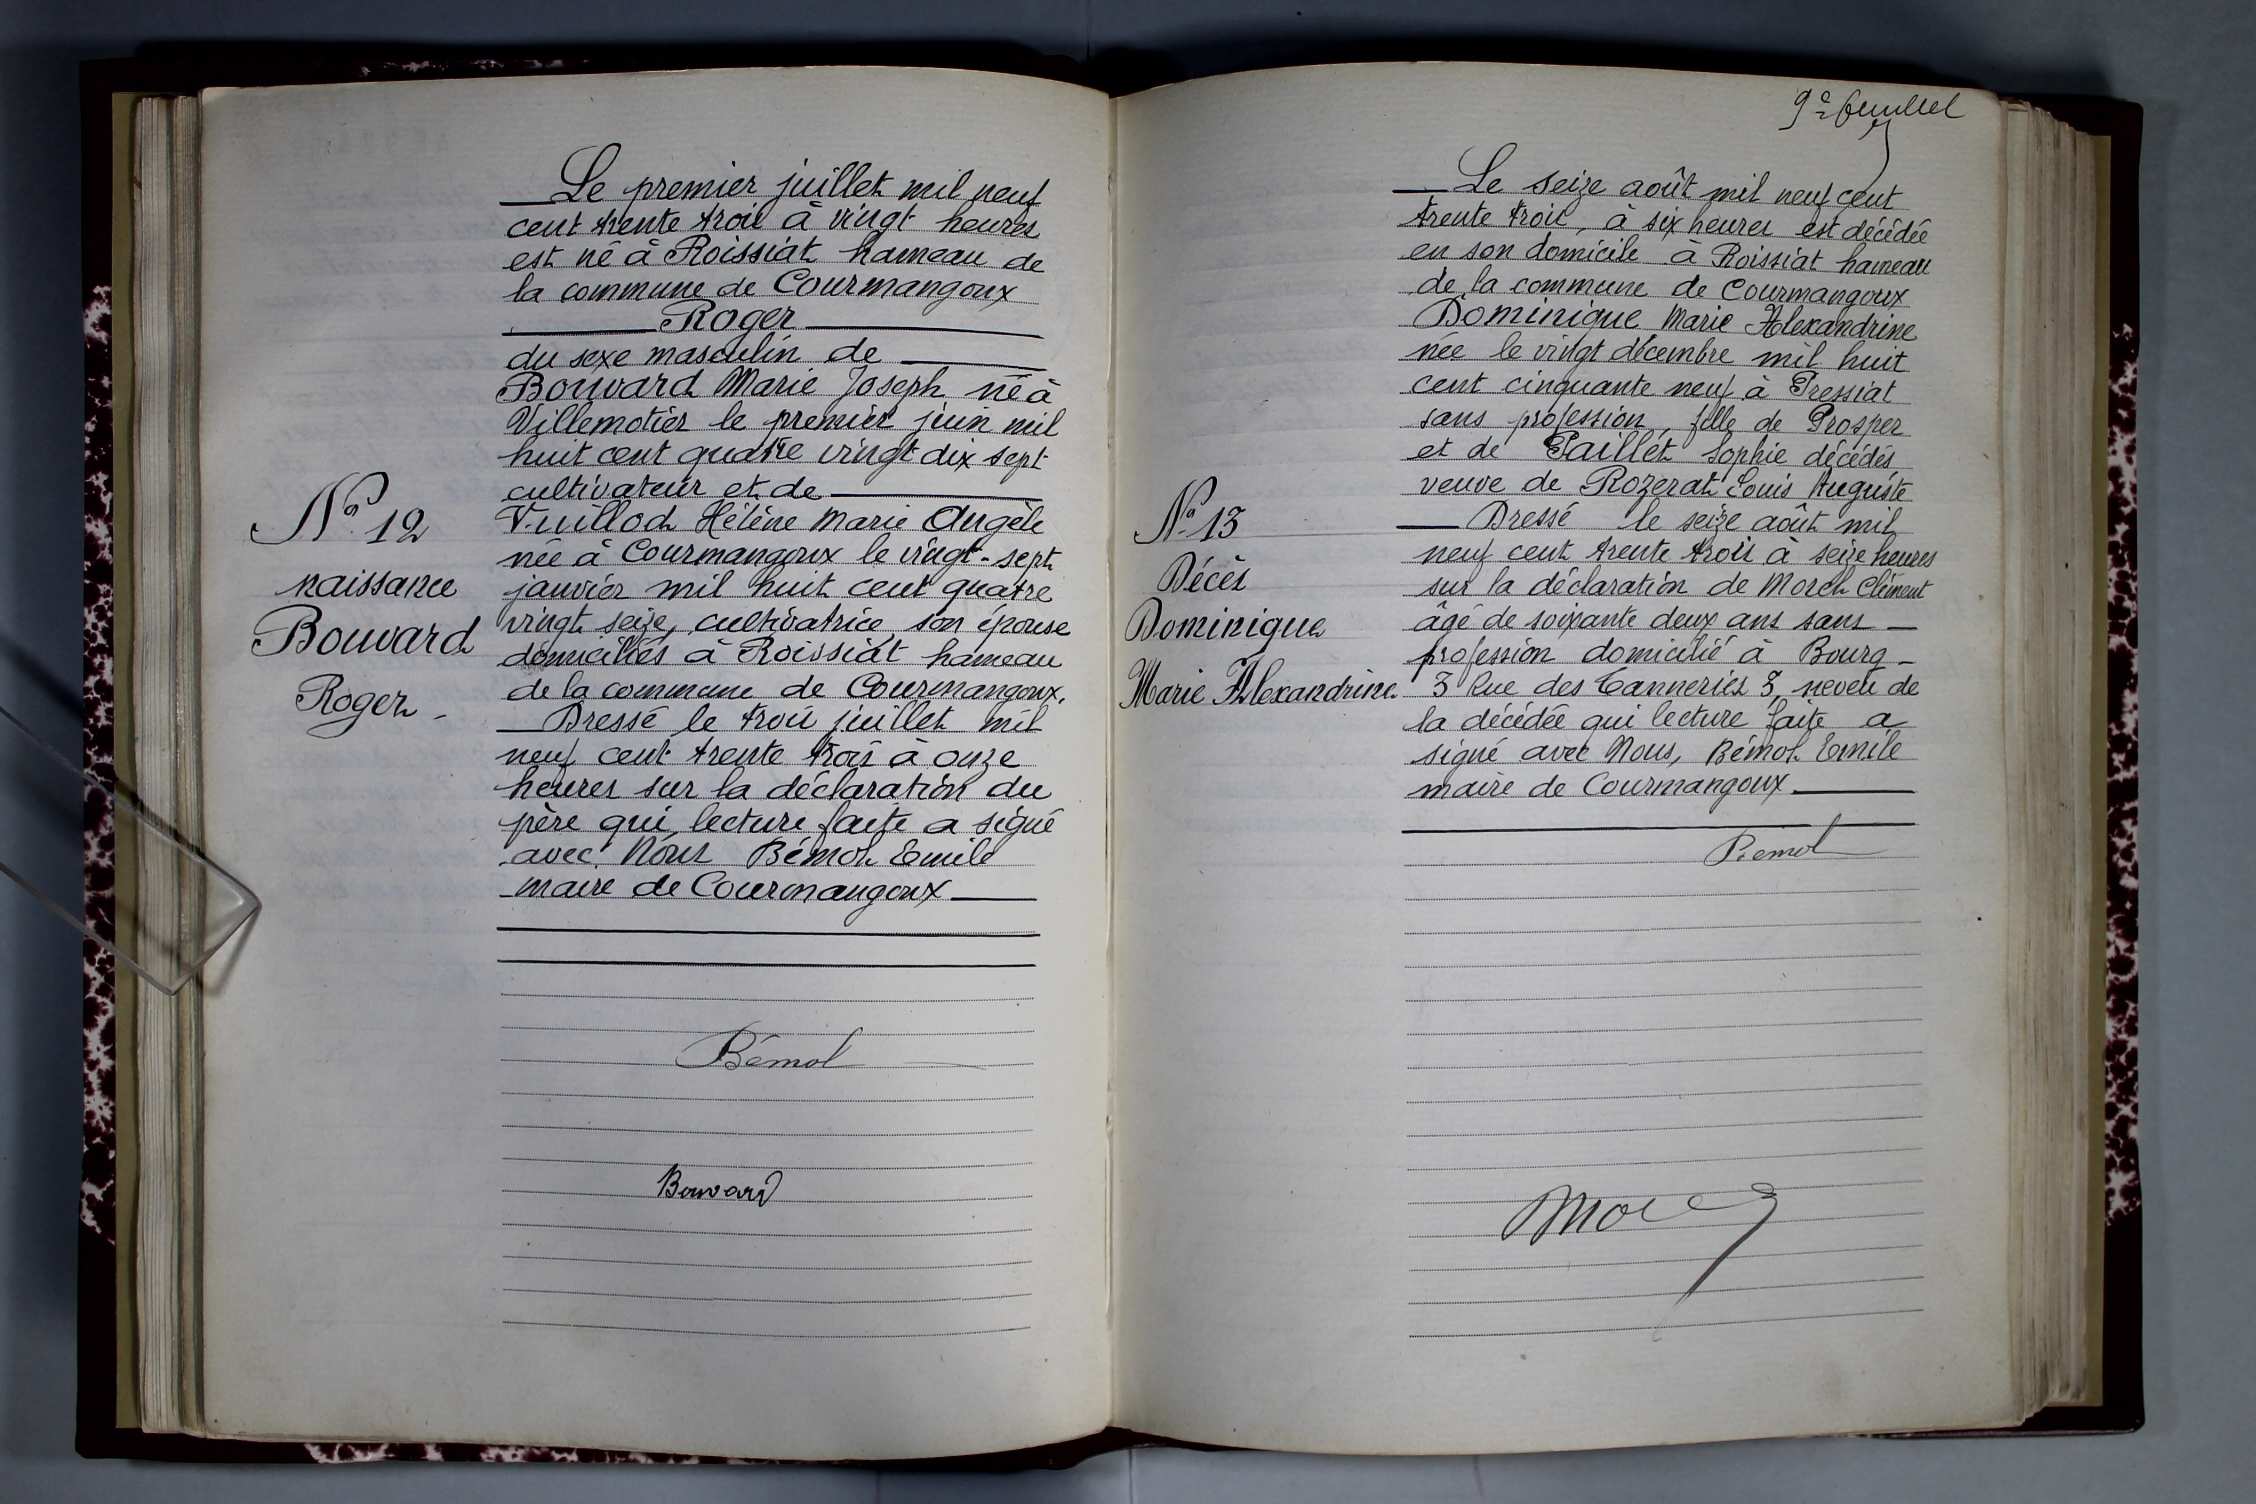 Le premier juillet mil neuf
cent trente trois à vingt heures
est né à Roissiat hameau de
la commune de Courmangoux
Roger
du sexe masculin de
Bouvard Marie Joseph né à
Villemotier le premier juin mil
huit cent quatre vingt dix sept
cultivateur et de
Vuillod Hélène Marie Angèle
née à Courmangoux le vingt-sept
janvier mil huit cent quatre
vingt seize, cultivatrice, son épouse
domiciliés à Roissiat hameau
de la commune de Courmangoux.
Dressé le trois juillet mil
neuf cent trente trois à onze
heures sur la déclaration du
père qui, lecture faite a signé
avec Nous Bémol Emile
maire de Courmangoux
N° 12
naissance
Bouvard
Roger
Bémol
Bouvard
9e feuillet
Le seize août mil neuf cent
trente trois, à six heures est décédée
en son domicile à Roissiat hameau
de la commune de Courmangoux
Dominique Marie Alexandrine
née le vingt décembre mil huit
cent cinquante neuf à Pressiat
sans profession, fille de Prosper
et de Paillet Sophie décédés,
veuve de Rozerat Louis Auguste
Dressé le seize août mil
neuf cent trente trois à seize heures
sur la déclaration de Morel Clément
âgé de soixante deux ans sans
profession domicilié à Bourg
3 Rue des Tanneries 3, neveu de
la décédée qui lecture faite a
signé avec Nous, Bémol Emile
maire de Courmangoux
N° 13
Décès
Dominique
Marie Alexandrine
Bemol
Morel